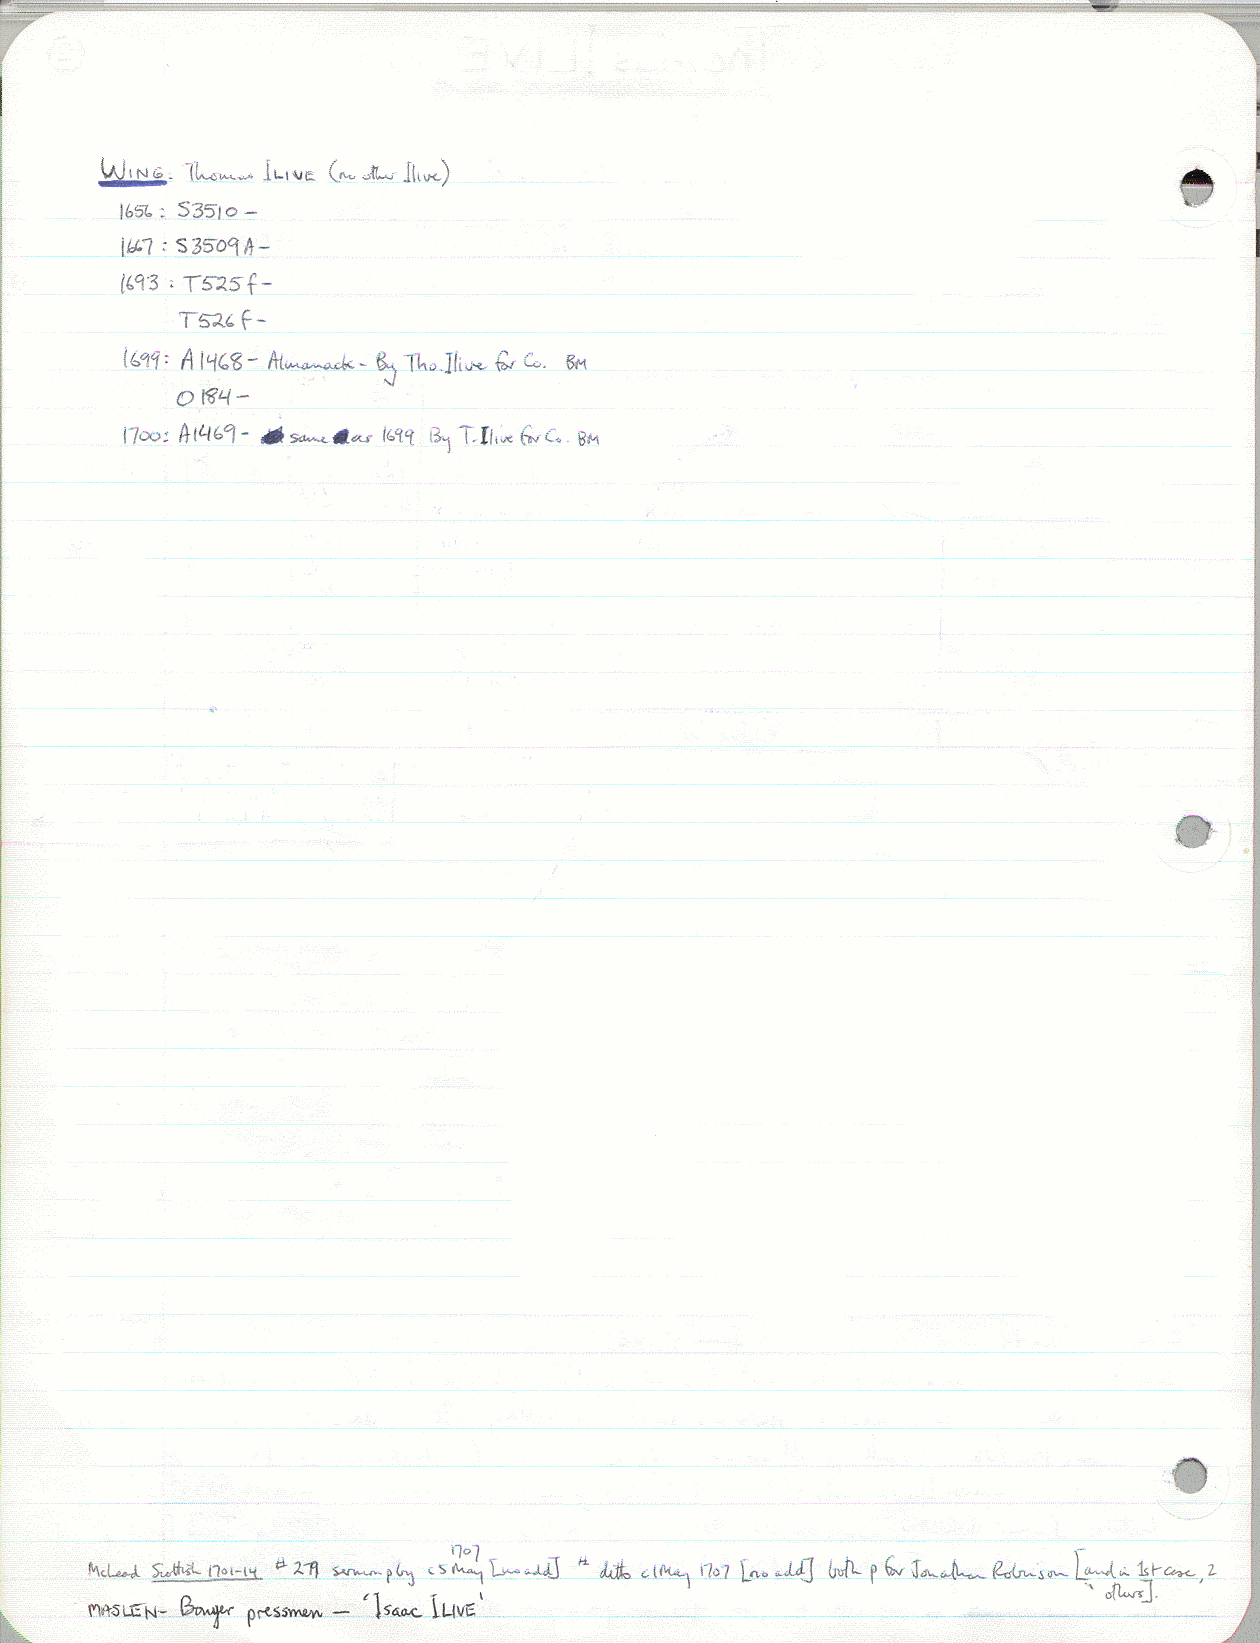 WING: Thomas ILIVE (no other Ilive)
1656: S3510 -
1667: S3509A -
1693: T525f -
T526f -
1699: A1468 - Almanack - By Tho. Ilive for Co. BM
O184 -
1700: A1469 - same as 1699 By T. Ilive for Co. BM
1707
McLead Scottish 1701-14 # 279 sermon p by c 5 May [no add] # ditto c 1 May 1707 [no add] both p for Jonathan Robinson [and in 1st case, 2
others].
MASLEN - Bowyer pressmen - 'Isaac ILIVE'